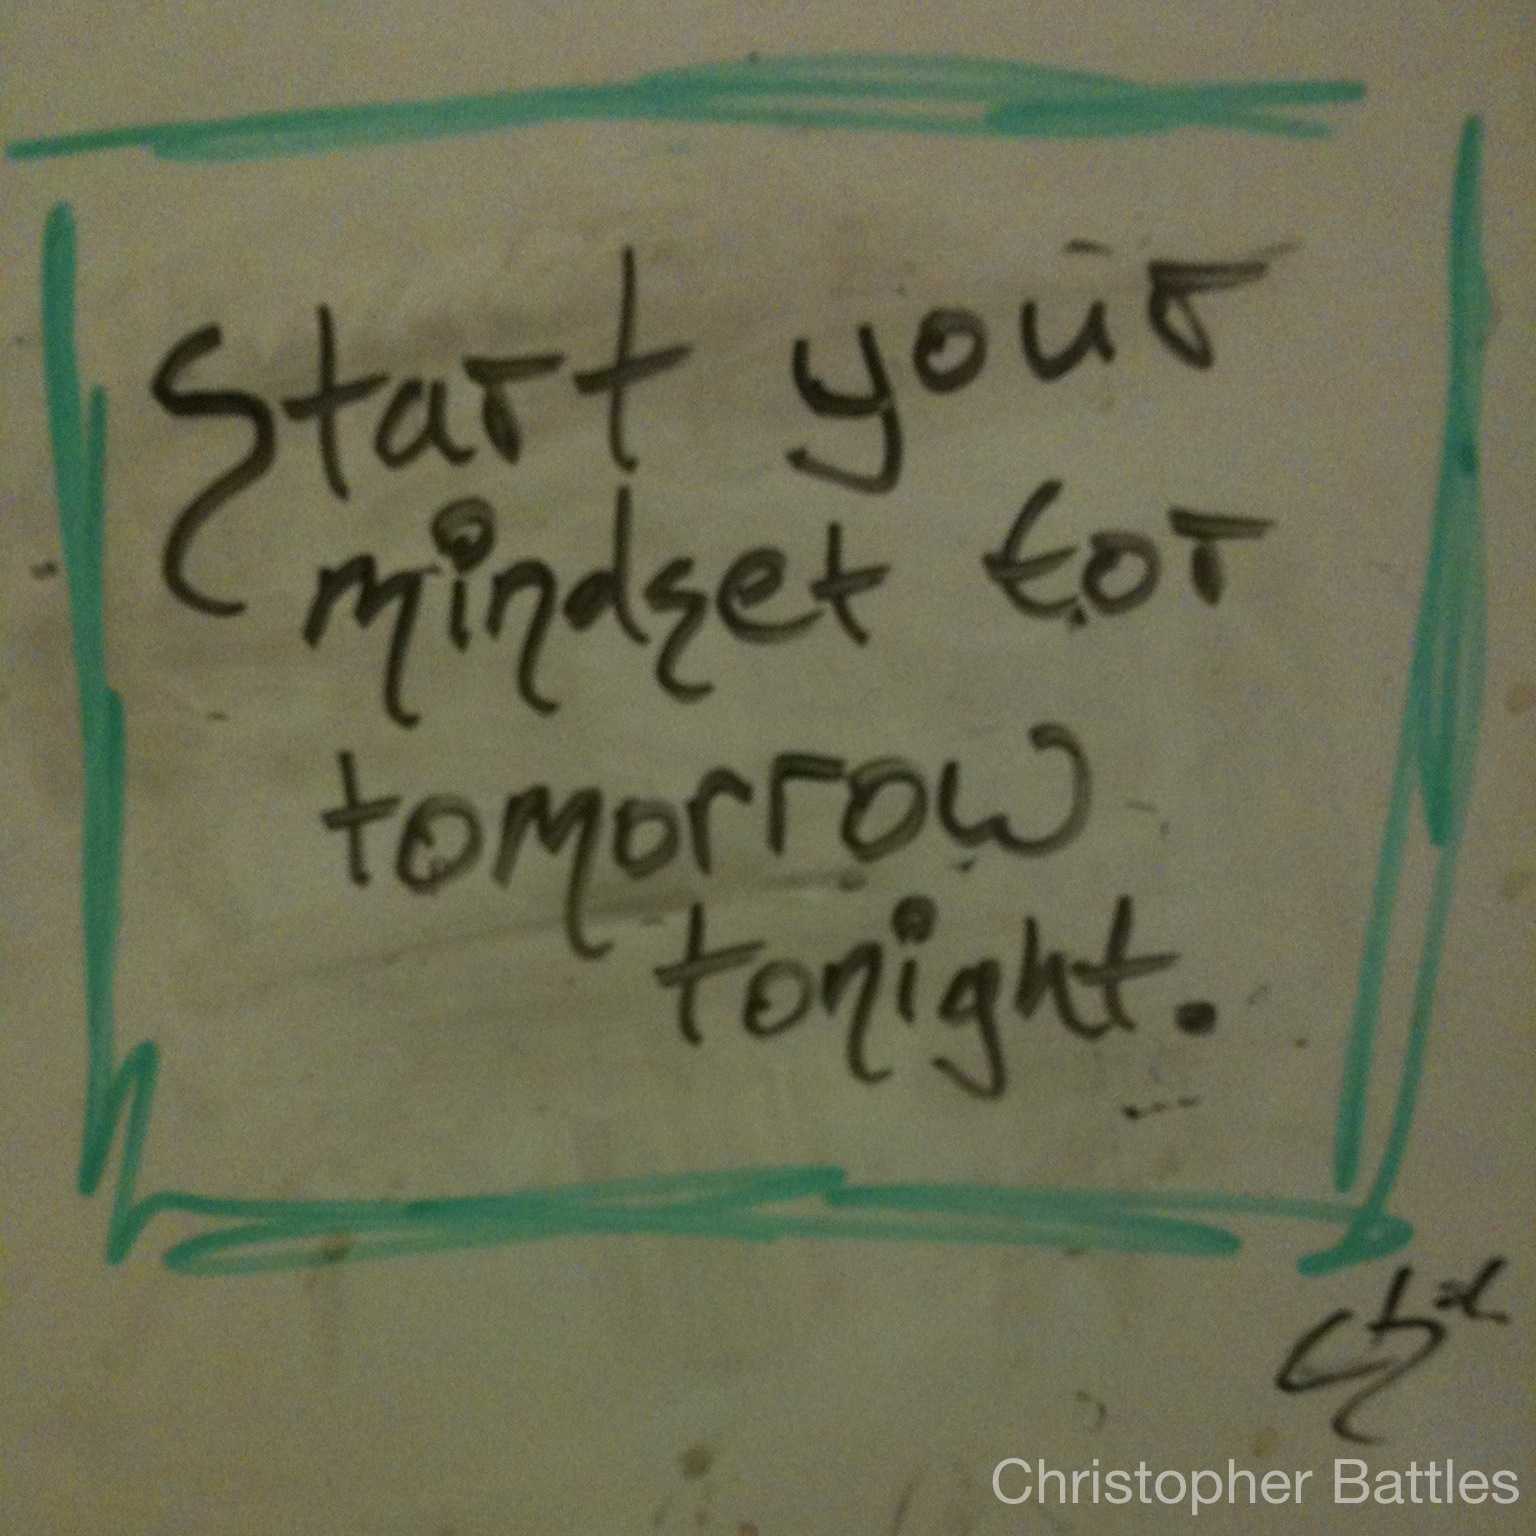 Start your
mindset for
tomorrow
tonight.
Christopher Battles